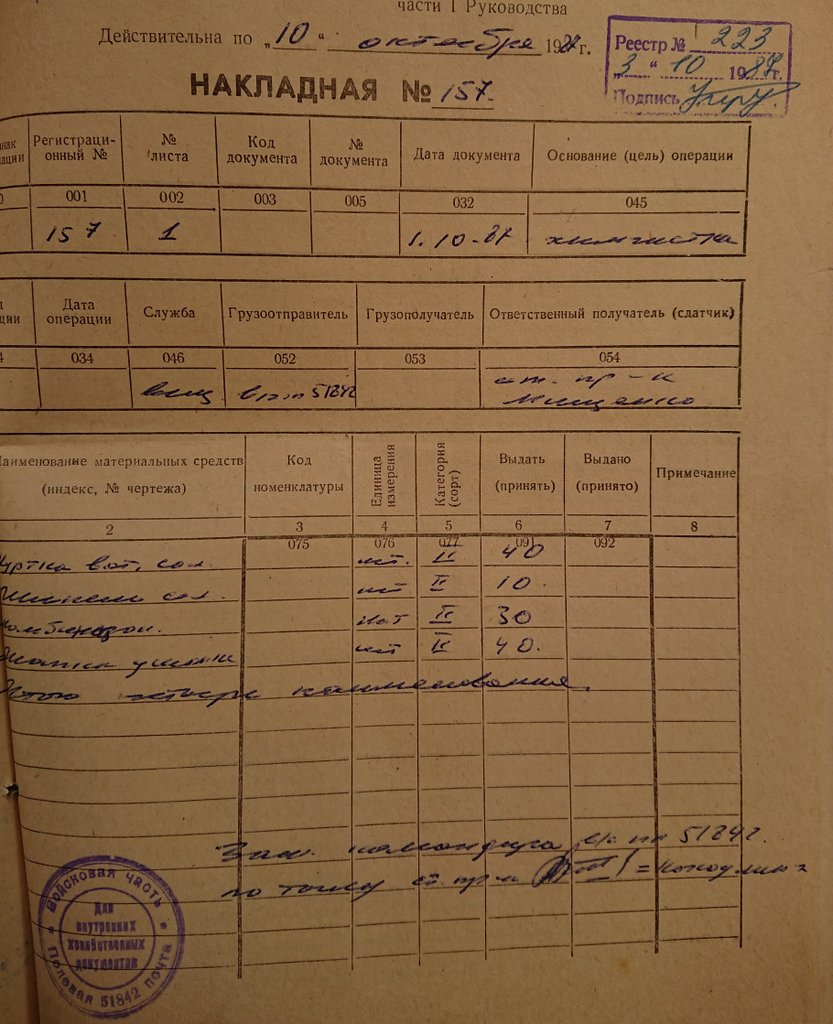 части I Руководства
Действительна по „10“ октября 1987 г.
НАКЛАДНАЯ № 157.
Реестр № 223
„3“ 10 1987 г.
Подпись
Регистраци-
онный №
№
листа
Код
документа
№
документа
Дата документа
Основание (цель) операции
001 002 003 005 032 045
157 1 1.10-87 химчистка
Дата
операции
Служба
Грузоотправитель
Грузополучатель
Ответственный получатель (сдатчик)
034 046 052 053 054
вещ в/ч пп 51842 ст. пр-к
Мищенко
Наименование материальных средств
(индекс, № чертежа)
Код
номенклатуры
Единица
измерения
Категория
(сорт)
Выдать
(принять)
Выдано
(принято)
Примечание
2 3 4 5 6 7 8
075 076 077 091 092
Куртка ват. сол. шт. II 40
Шинель сол. шт II 10.
Комбинезон. шт II 30
Шапка ушанка шт II 40.
Итого четыре наименования.
Зам. командира в/ч пп 51842.
по тылу ст. пр-к
Войсковая часть
Полевая почта 51842
Для
внутренних
хозяйственных
документов